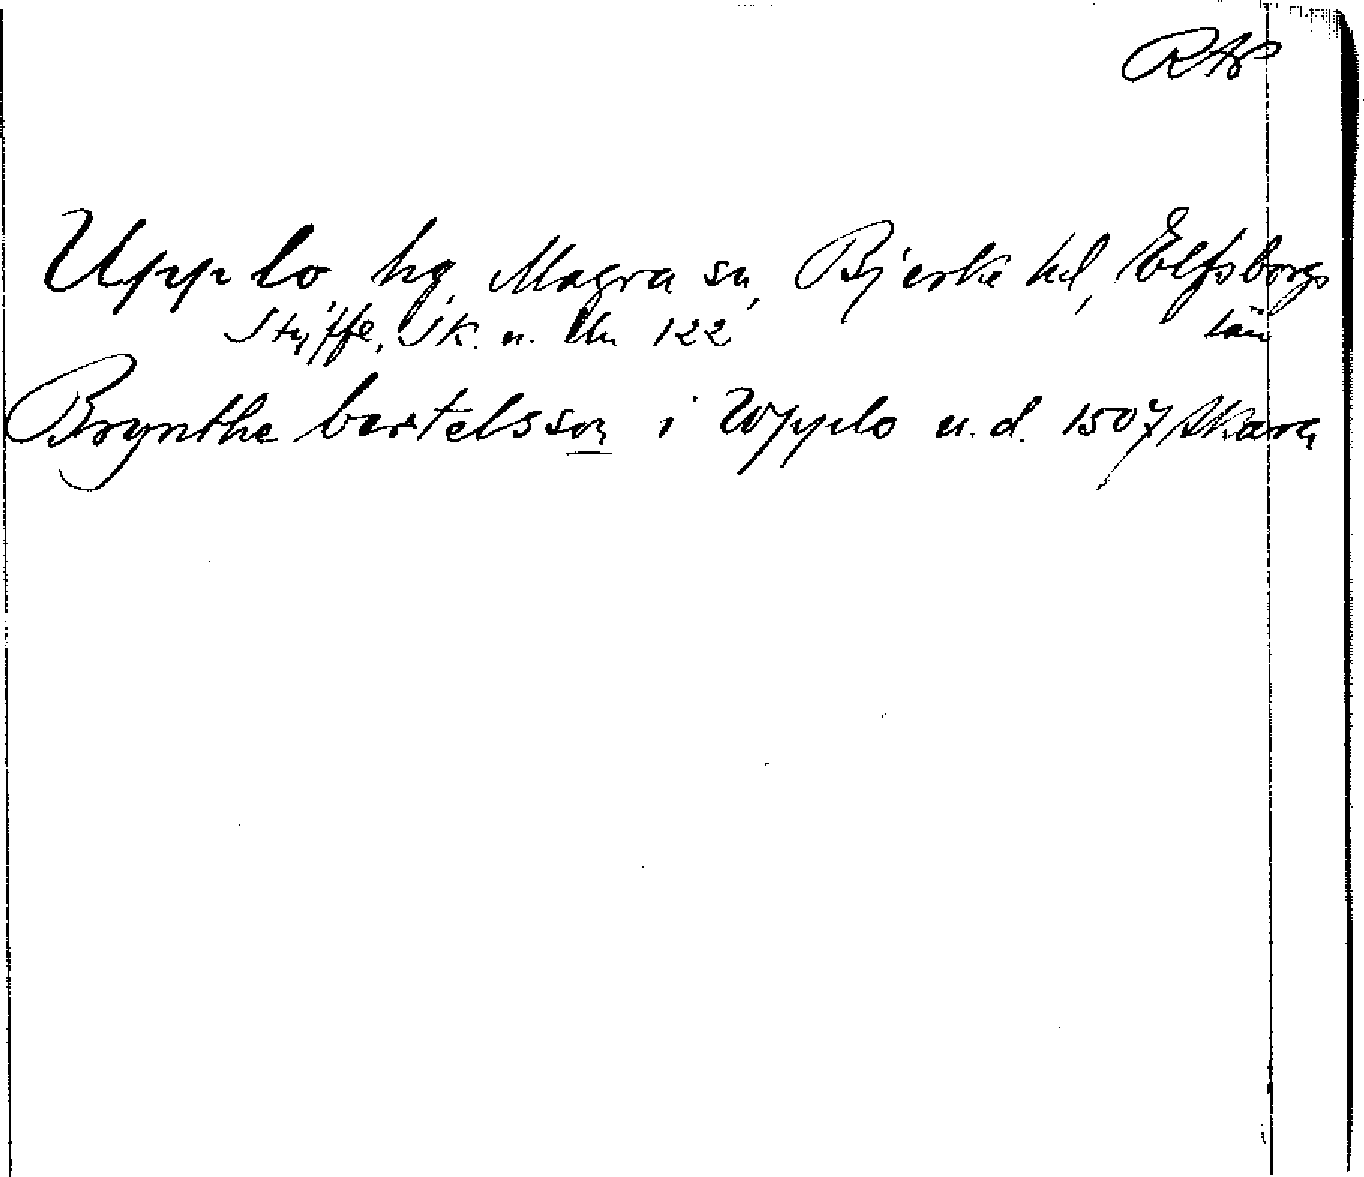 RAP
Upplo hg, Magra sn, Bjerke hd, Elfsborgs
Styffe, Sk. u. Un 122 län
Brynthe bertelsson i Wpplo u.d. 1507 Skara